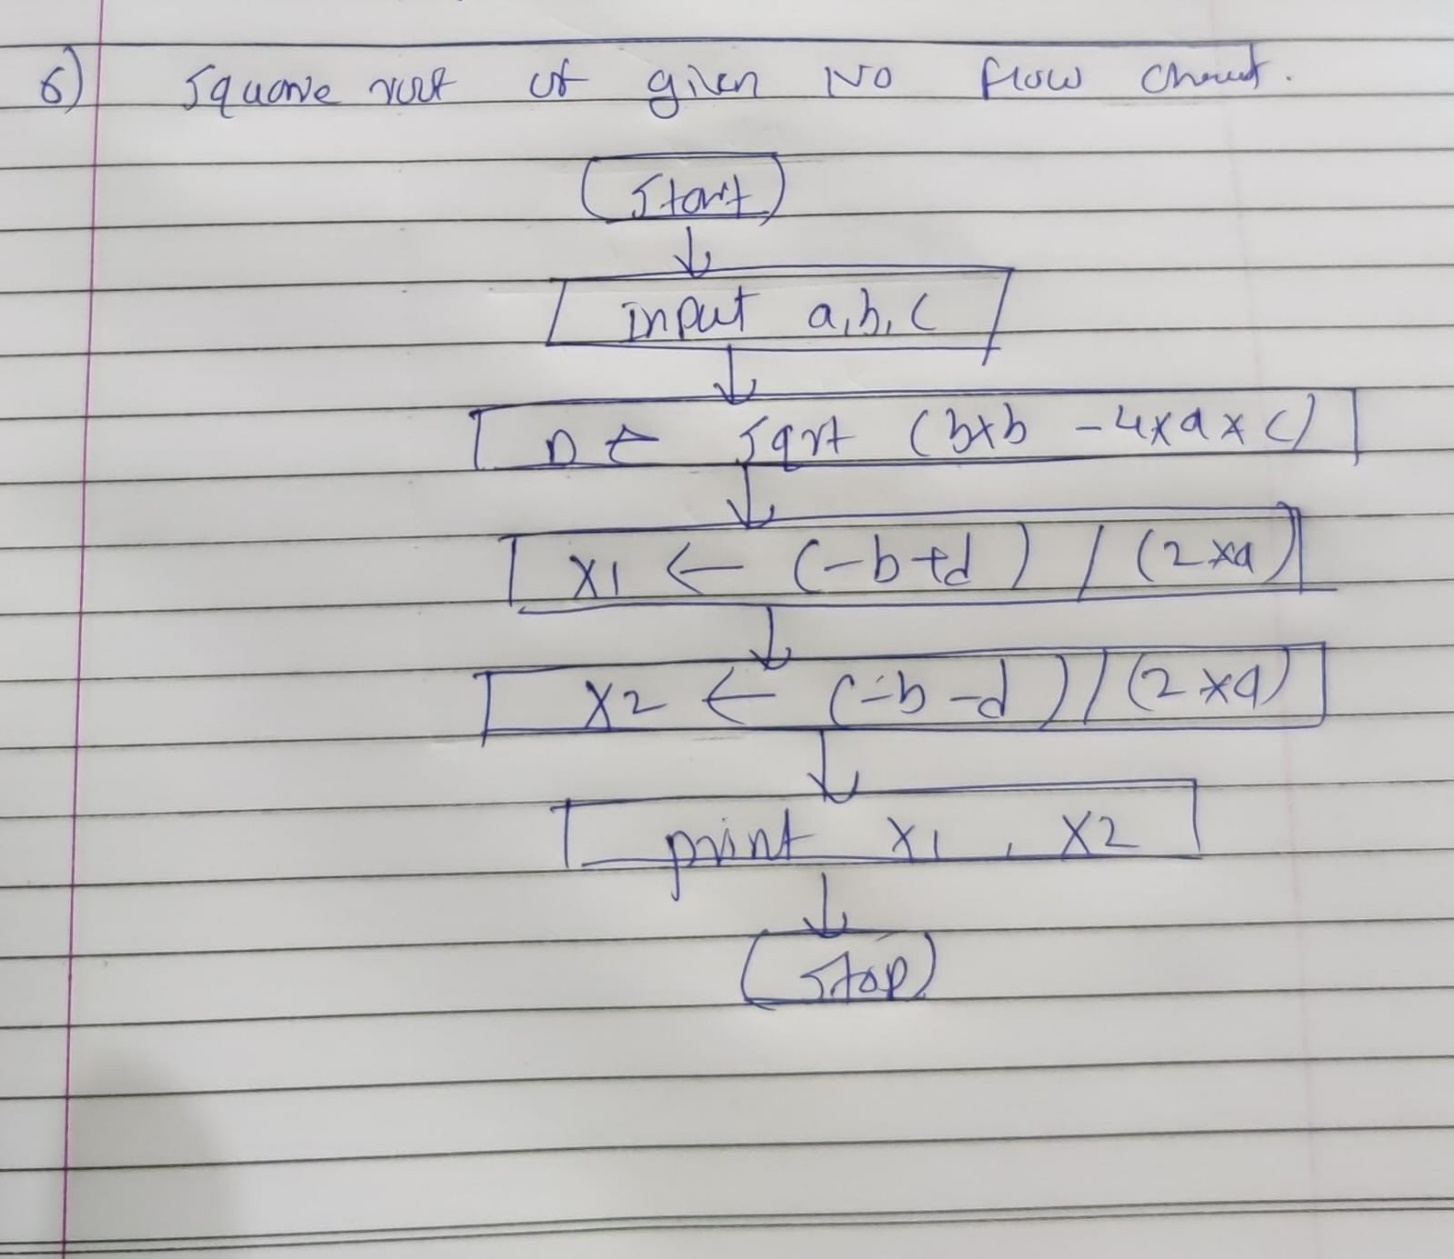 6) Square root of given No flow chart.
Start
input a, b, c
D ← sqrt (b×b - 4×a×c)
X1 ← (-b+d) / (2×a)
X2 ← (-b-d) / (2×a)
print X1, X2
Stop